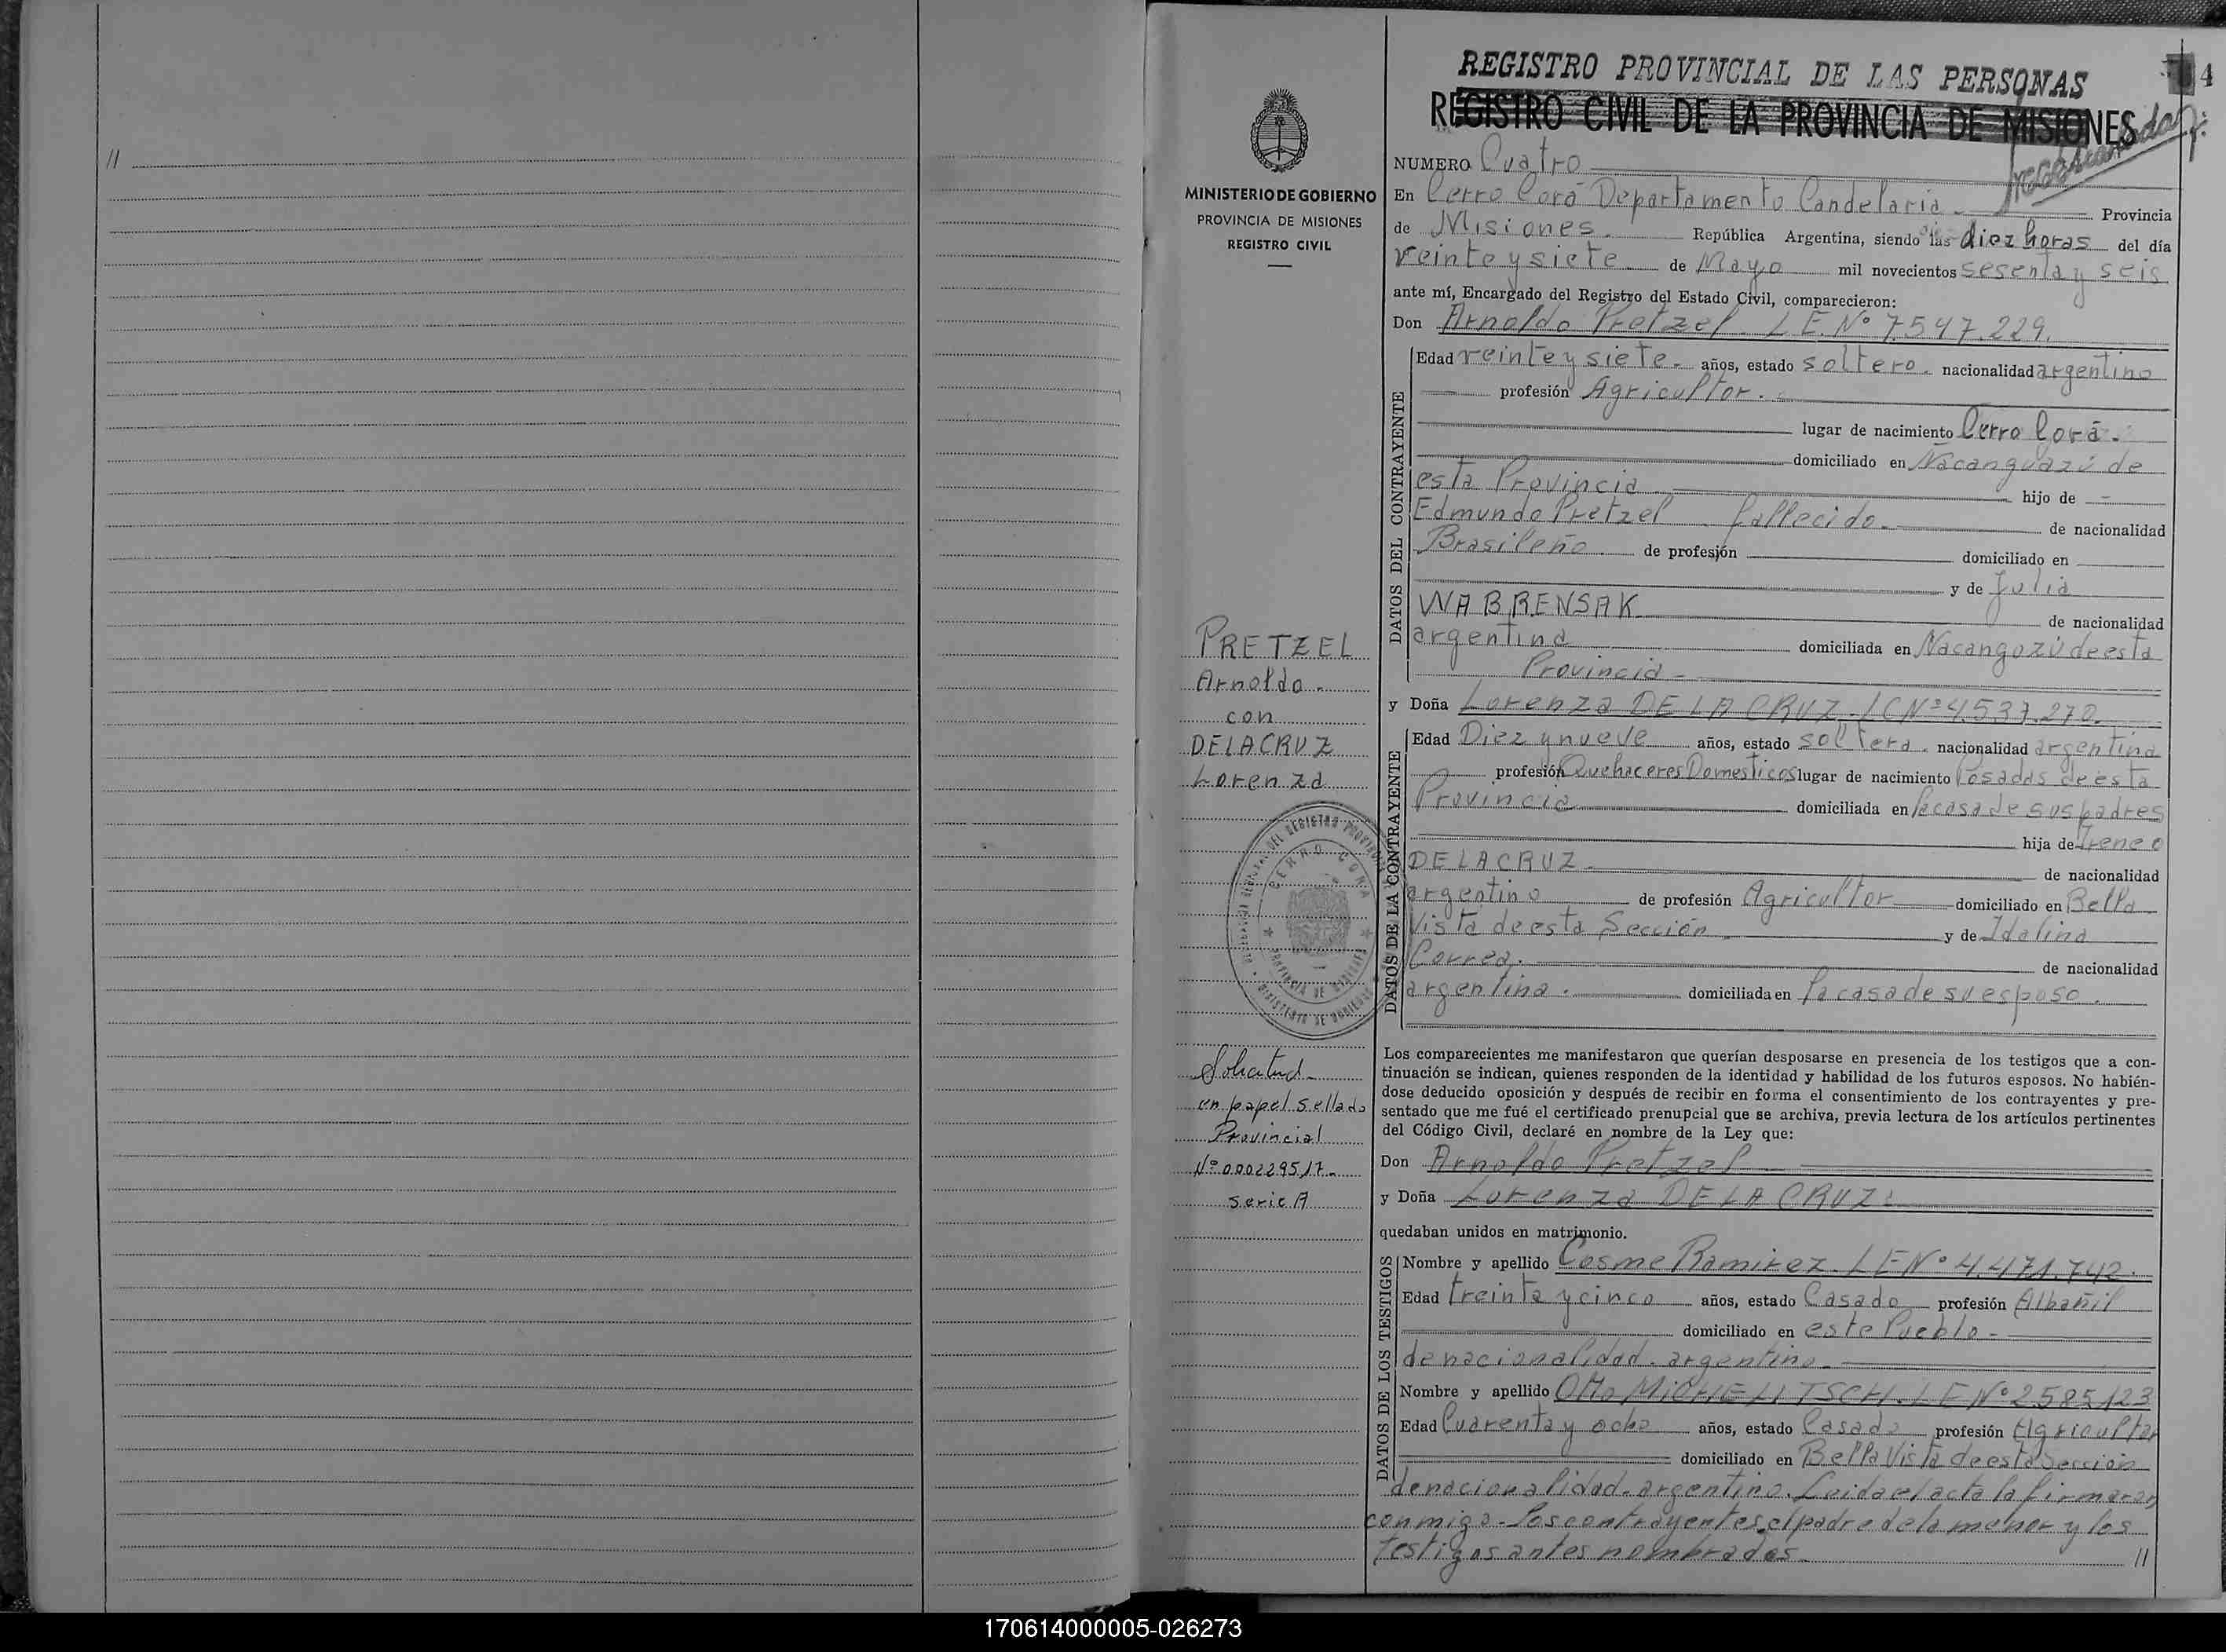 //
REGISTRO PROVINCIAL DE LAS PERSONAS
4
REGISTRO CIVIL DE LA PROVINCIA DE MISIONES
MINISTERIO DE GOBIERNO
PROVINCIA DE MISIONES
REGISTRO CIVIL
NUMERO Cuatro
En Cerro Corá Departamento Candelaria Provincia
de Misiones. República Argentina, siendo las diez horas del día
veinte y siete de Mayo mil novecientos sesenta y seis
ante mí, Encargado del Registro del Estado Civil, comparecieron:
Don Arnoldo Pretzel. L E. Nº 7.547.229.
DATOS DEL CONTRAYENTE
Edad veinte y siete años, estado soltero. nacionalidad argentino
profesión Agricultor.
lugar de nacimiento Cerro Corá.
domiciliado en Ñacanguazú de
esta Provincia hijo de
Edmundo Pretzel fallecido. de nacionalidad
Brasileño de profesión domiciliado en
y de Julia
WABRENSAK de nacionalidad
argentina domiciliada en Ñacanguzú de esta
Provincia
PRETZEL
Arnoldo.
con
DELACRUZ
Lorenza
y Doña Lorenza DE LA CRUZ. / C Nº 4.537.270.
DATOS DE LA CONTRAYENTE
Edad Diez y nueve años, estado soltera. nacionalidad argentina
profesión Quehaceres Domesticos lugar de nacimiento Posadas de esta
Provincia domiciliada en la casa de sus padres
hija de Ireneo
DE LA CRUZ de nacionalidad
argentino de profesión Agricultor domiciliado en Bella
Vista de esta Sección y de Idalina
Correa. de nacionalidad
argentina. domiciliada en la casa de su esposo.
CERRO CORA
Solicitud
en papel sellado
Provincial
Nº 000229517
serie A
Los comparecientes me manifestaron que querían desposarse en presencia de los testigos que a con-
tinuación se indican, quienes responden de la identidad y habilidad de los futuros esposos. No habién-
dose deducido oposición y después de recibir en forma el consentimiento de los contrayentes y pre-
sentado que me fué el certificado prenupcial que se archiva, previa lectura de los artículos pertinentes
del Código Civil, declaré en nombre de la Ley que:
Don Arnoldo Pretzel
y Doña Lorenza DE LA CRUZ
quedaban unidos en matrimonio.
DATOS DE LOS TESTIGOS
Nombre y apellido Cosme Ramirez. L E Nº 4.471.742.
Edad treinta y cinco años, estado Casado profesión Albañil
domiciliado en este Pueblo
de nacionalidad argentino
Nombre y apellido Otto MICHELITSCH. L E Nº 2585123
Edad Cuarenta y ocho años, estado Casado profesión Agricultor
domiciliado en Bella Vista de esta Sección
de nacionalidad argentino. Leida el acta la firmaron
conmigo los contrayentes, el padre de la menor y los
testigos antes nombrados //
170614000005-026273